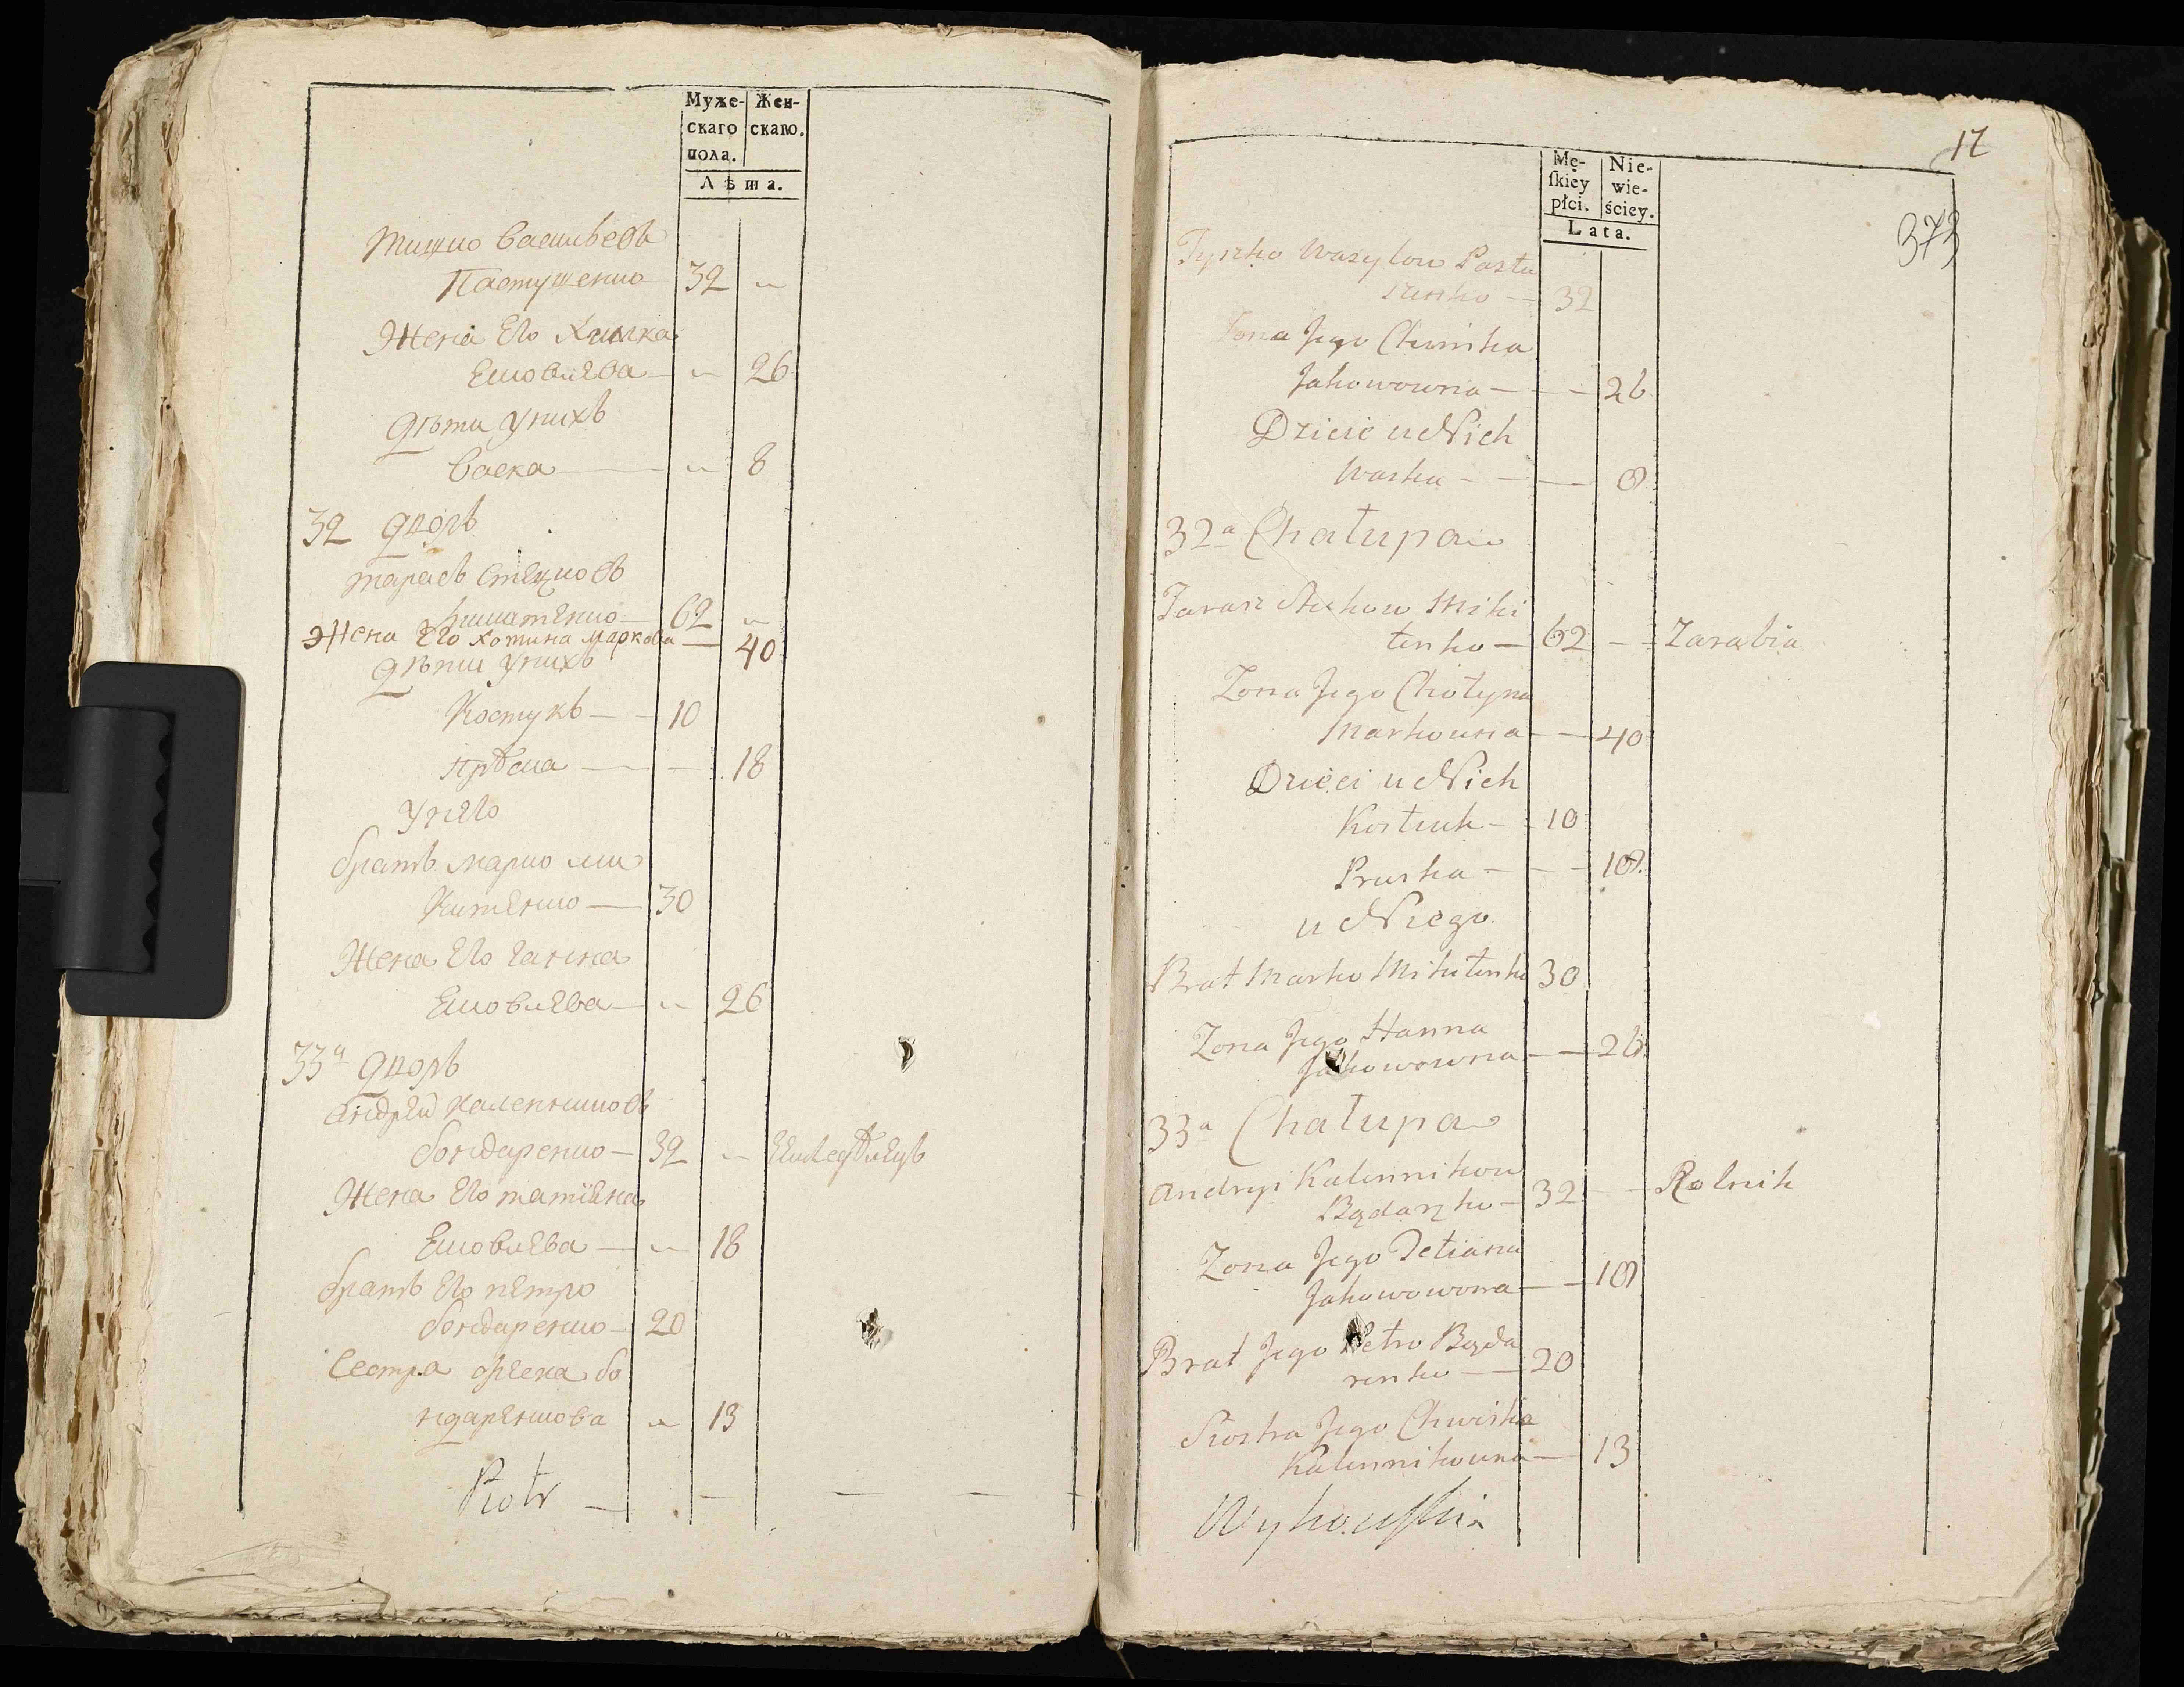 Муже- Жен-
скаго скаго.
пола.
Лѣта.
Тишко Васильевъ
Пастушенко 32 "
Жена Его Химка
Ековлева — " 26
Дѣти у нихъ
Васка — " 8
32 Дворъ
Тарасъ Стецковъ
Микитенко — 62 "
Жена Его Хотина Маркова — 40
Дѣти у нихъ
Костукъ — 10
Прѣска — — 18
У него
братъ Марко Ми
китенко — 30
Жена Его Ганна
Ековлева — " 26
33й Дворъ
Андрей Каленниковъ
бондаренко — 32 " Земледѣлецъ
Жена Его Татіяна
Ековлева — " 18
братъ Его Петро
бондаренко — 20
Сестра Фвека бо
ндаренкова " 13
Piotr —
17
373
Mę- Nie-
ſkiey wie-
płci. ściey.
Lata.
Tyszko Wasylow Pastu
szenko — 32
Zona Jego Chimka
Jakowowna — — 26
Dziecie u Nich
Waska — — 8
32a Chałupa
Tarasz Steckow Miki
tenko — 62 — Zarabia
Zona Jego Chotyna
Markowna — — 40
Dzieci u Nich
Kostiuk — 10
Pruska — — 18
u Niego
Brat Marko Mikitenko 30
Zona Jego Hanna
Jakowowna — — 26
33a Chałupa
Andryi Kalinnikow
Bądarzko — 32 — Rolnik
Zona Jego Tetiana
Jakowowowna — — 18
Brat Jego Petro Bąda
renko — 20
Siostra Jego Chwiska
Kalinnikowna — 13
Wyhowski